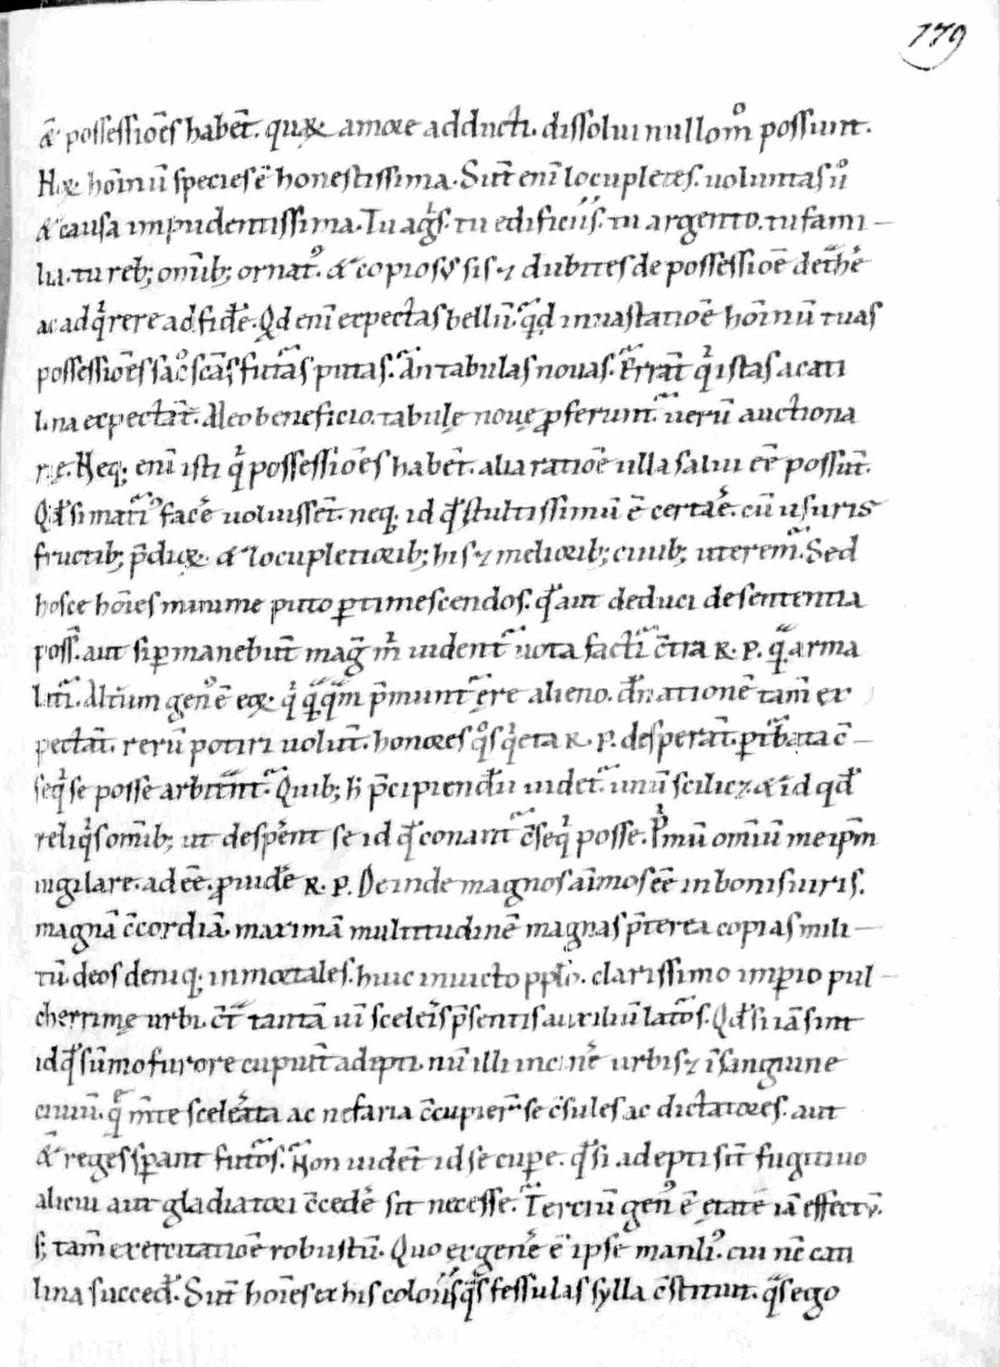 179
& possessiōes habēt. quaꝝ amore adducti. dissolui nullom̊ possunt.
Haꝝ hoīnū species ē honestissima. Sūt enī locupletes. uoluntas ů
& causa impudentissima. Tu agris. tu edificiis. tu argento. tu fami-
lia. tu reb; omīb; ornat᷒. & copiosus sis ⁊ dubites de possessiōe det̄here
ac adqͥrere ad fidē. Qd enī expectas bellū. qd in uastatiōe hoīnū tuas
possessiōes sac̊scās futūas putas. An tabulas nouas. Errāt qͥ istas a cati
lina expectāt. Meo beneficio. tabulę nouę ꝓferunt᷑. uerū auctiona
rię. Neq; enī isti qͥ possessiōes habēt. alia ratiōe ulla salui eē possūt.
Qd si matūi᷒ facē uoluissēt. neq. id qd stultissimū ē certarē. cū usuris
fructib; p̄diꝝ. & locupletiorib; his ⁊ meliorib; ciuib; uterem̄. Sed
hosce hoīes minime puto ꝑtimescendos. qd aut deduci de sententia
poss̄. aut si ꝑmanebūt mag̅ m̄ uident᷑ uota facti c̄tra R. P. q̄ arma
lat̄i. Altūm gen᷒ ē eoꝝ. qͥ qͣqͣm p̄munt᷑ ęre alieno. dn̄ationē tam̄ ex
pectāt. rerū potiri uolūt. honores qͦs qͥeta R. P. desperāt. ꝑt᷑bata c̄-
seqͥ se posse arbitn̄t᷑. Quib; h̄ p̄cipiendū uidet᷑. unū scilic⁊. & id qd
reliqͥs omīb; ut desperent se id qd conant᷑ c̄seqͥ posse. Pͥmū omīū meipm̄
uigilare. adeē. ꝓuidē R. P. Deinde magnos aīmos eē in bonis uiris.
magnā c̄cordiā. maximā multitudinē magnas p̄terea copias mili-
tū. deos deniq; inmortales. huic inuicto ppl̄o. clarissimo imꝑio pul-
cherrimę urbi. c̄t᷑ tantā uī sceleris p̄sentis auxiliū latos. Qd si iā sint
id qd sūmo furore cupiūt adepti. nū illi in cinē urbis ⁊ ī sanguine
ciuiū. qͥ m̄te scelerata ac nefaria c̄cupierūt se c̄sules ac dictatores. aut
& reges sꝑant futos. Non uidēt id se cuꝑe. qd si adepti sīt fugitiuo
alicui aut gladiatori c̄cedē sit necesse. Tertiū gen᷒ ē ętate iā effectū.
s; tam̄ exercitatiōe robustū. Quo ex genē ē ipse manli᷒. cui nē cati
lina succed̄. Sūt hoīes ex his coloniis qͣs fessulas sylla c̄stituit. qͣs ego